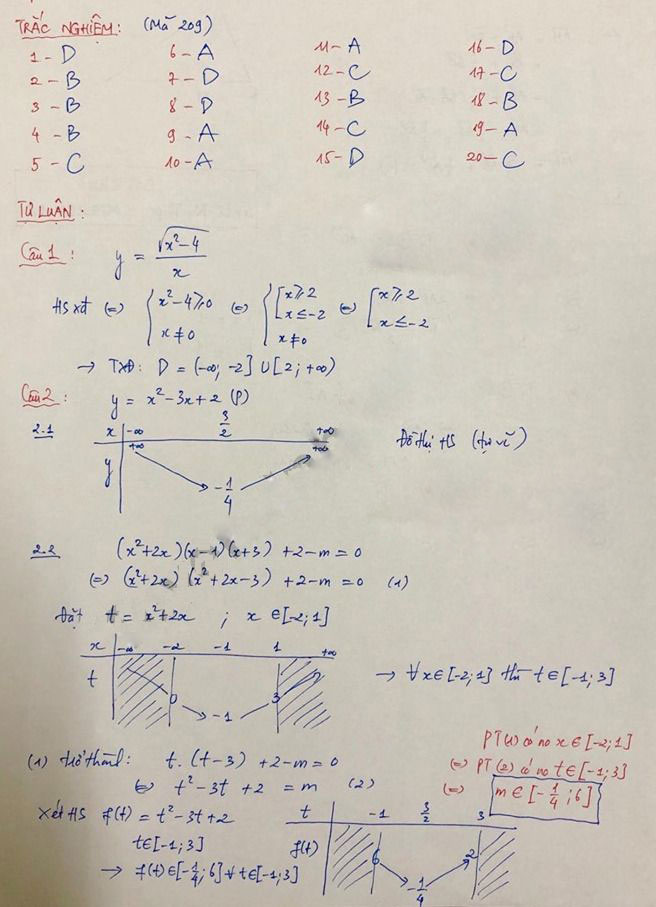 TRẮC NGHIỆM: (Mã 209)
1 - D 6 - A 11 - A 16 - D
2 - B 7 - D 12 - C 17 - C
3 - B 8 - D 13 - B 18 - B
4 - B 9 - A 14 - C 19 - A
5 - C 10 - A 15 - D 20 - C
TỰ LUẬN:
Câu 1: y = √(x²-4) / x
HS xđ ⇔ { x²-4 ≥ 0 ; x ≠ 0 ⇔ { [ x ≥ 2 ; x ≤ -2 ; x ≠ 0 ⇔ [ x ≥ 2 ; x ≤ -2
→ TXĐ: D = (-∞; -2] ∪ [2; +∞)
Câu 2: y = x² - 3x + 2 (P)
2.1 x -∞ 3/2 +∞ Đồ thị HS (tự vẽ)
y +∞ -1/4 +∞
2.2 (x²+2x)(x-1)(x+3) + 2 - m = 0
⇔ (x²+2x)(x²+2x-3) + 2 - m = 0 (1)
Đặt t = x²+2x ; x ∈ [-2; 1]
x -∞ -2 -1 1 +∞
t 0 -1 3 → ∀x ∈ [-2; 1] thì t ∈ [-1; 3]
(1) trở thành: t.(t-3) + 2 - m = 0
⇔ t² - 3t + 2 = m (2)
Xét HS f(t) = t² - 3t + 2
t ∈ [-1; 3]
→ f(t) ∈ [-1/4; 6] ∀ t ∈ [-1; 3]
t -1 3/2 3
f(t) 6 -1/4 2
PT (1) có no x ∈ [-2; 1]
⇔ PT (2) có no t ∈ [-1; 3]
⇔ m ∈ [-1/4; 6]